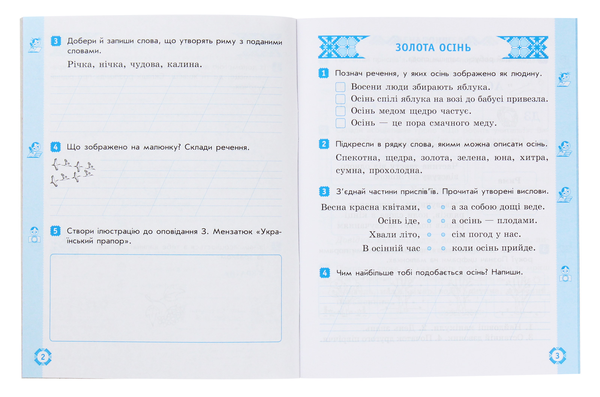 3 Добери й запиши слова, що утворять риму з поданими
словами.
Річка, нічка, чудова, калина.
4 Що зображено на малюнку? Склади речення.
5 Створи ілюстрацію до оповідання З. Мензатюк «Укра-
їнський прапор».
2
ЗОЛОТА ОСІНЬ
1 Познач речення, у яких осінь зображено як людину.
Восени люди збирають яблука.
Осінь спілі яблука на возі до бабусі привезла.
Осінь медом щедро частує.
Осінь — це пора смачного меду.
2 Підкресли в рядку слова, якими можна описати осінь.
Спекотна, щедра, золота, зелена, юна, хитра,
сумна, прохолодна.
3 З’єднай частини прислів’їв. Прочитай утворені вислови.
Весна красна квітами, а за собою дощі веде.
Осінь іде, а осінь — плодами.
Хвали літо, сім погод у нас.
В осінній час коли осінь прийде.
4 Чим найбільше тобі подобається осінь? Напиши.
3